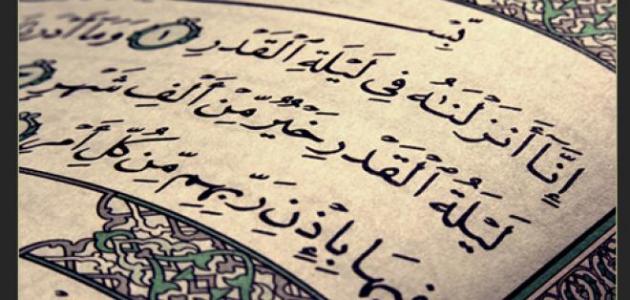 إِنَّآ أَنزَلْنَـٰهُ فِى لَيْلَةِ ٱلْقَدْرِ ١ وَمَآ أَدْرَ
لَيْلَةُ ٱلْقَدْرِ خَيْرٌ مِّنْ أَلْفِ شَهْرٍ
فِيهَا بِإِذْنِ رَبِّهِم مِّن كُلِّ أَمْرٍ